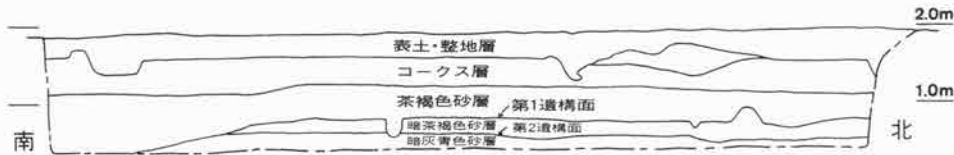 2.0m
表土・整地層
コークス層
1.0m
茶褐色砂層
第1遺構面
暗茶褐色砂層
第2遺構面
暗灰青色砂層
南
北